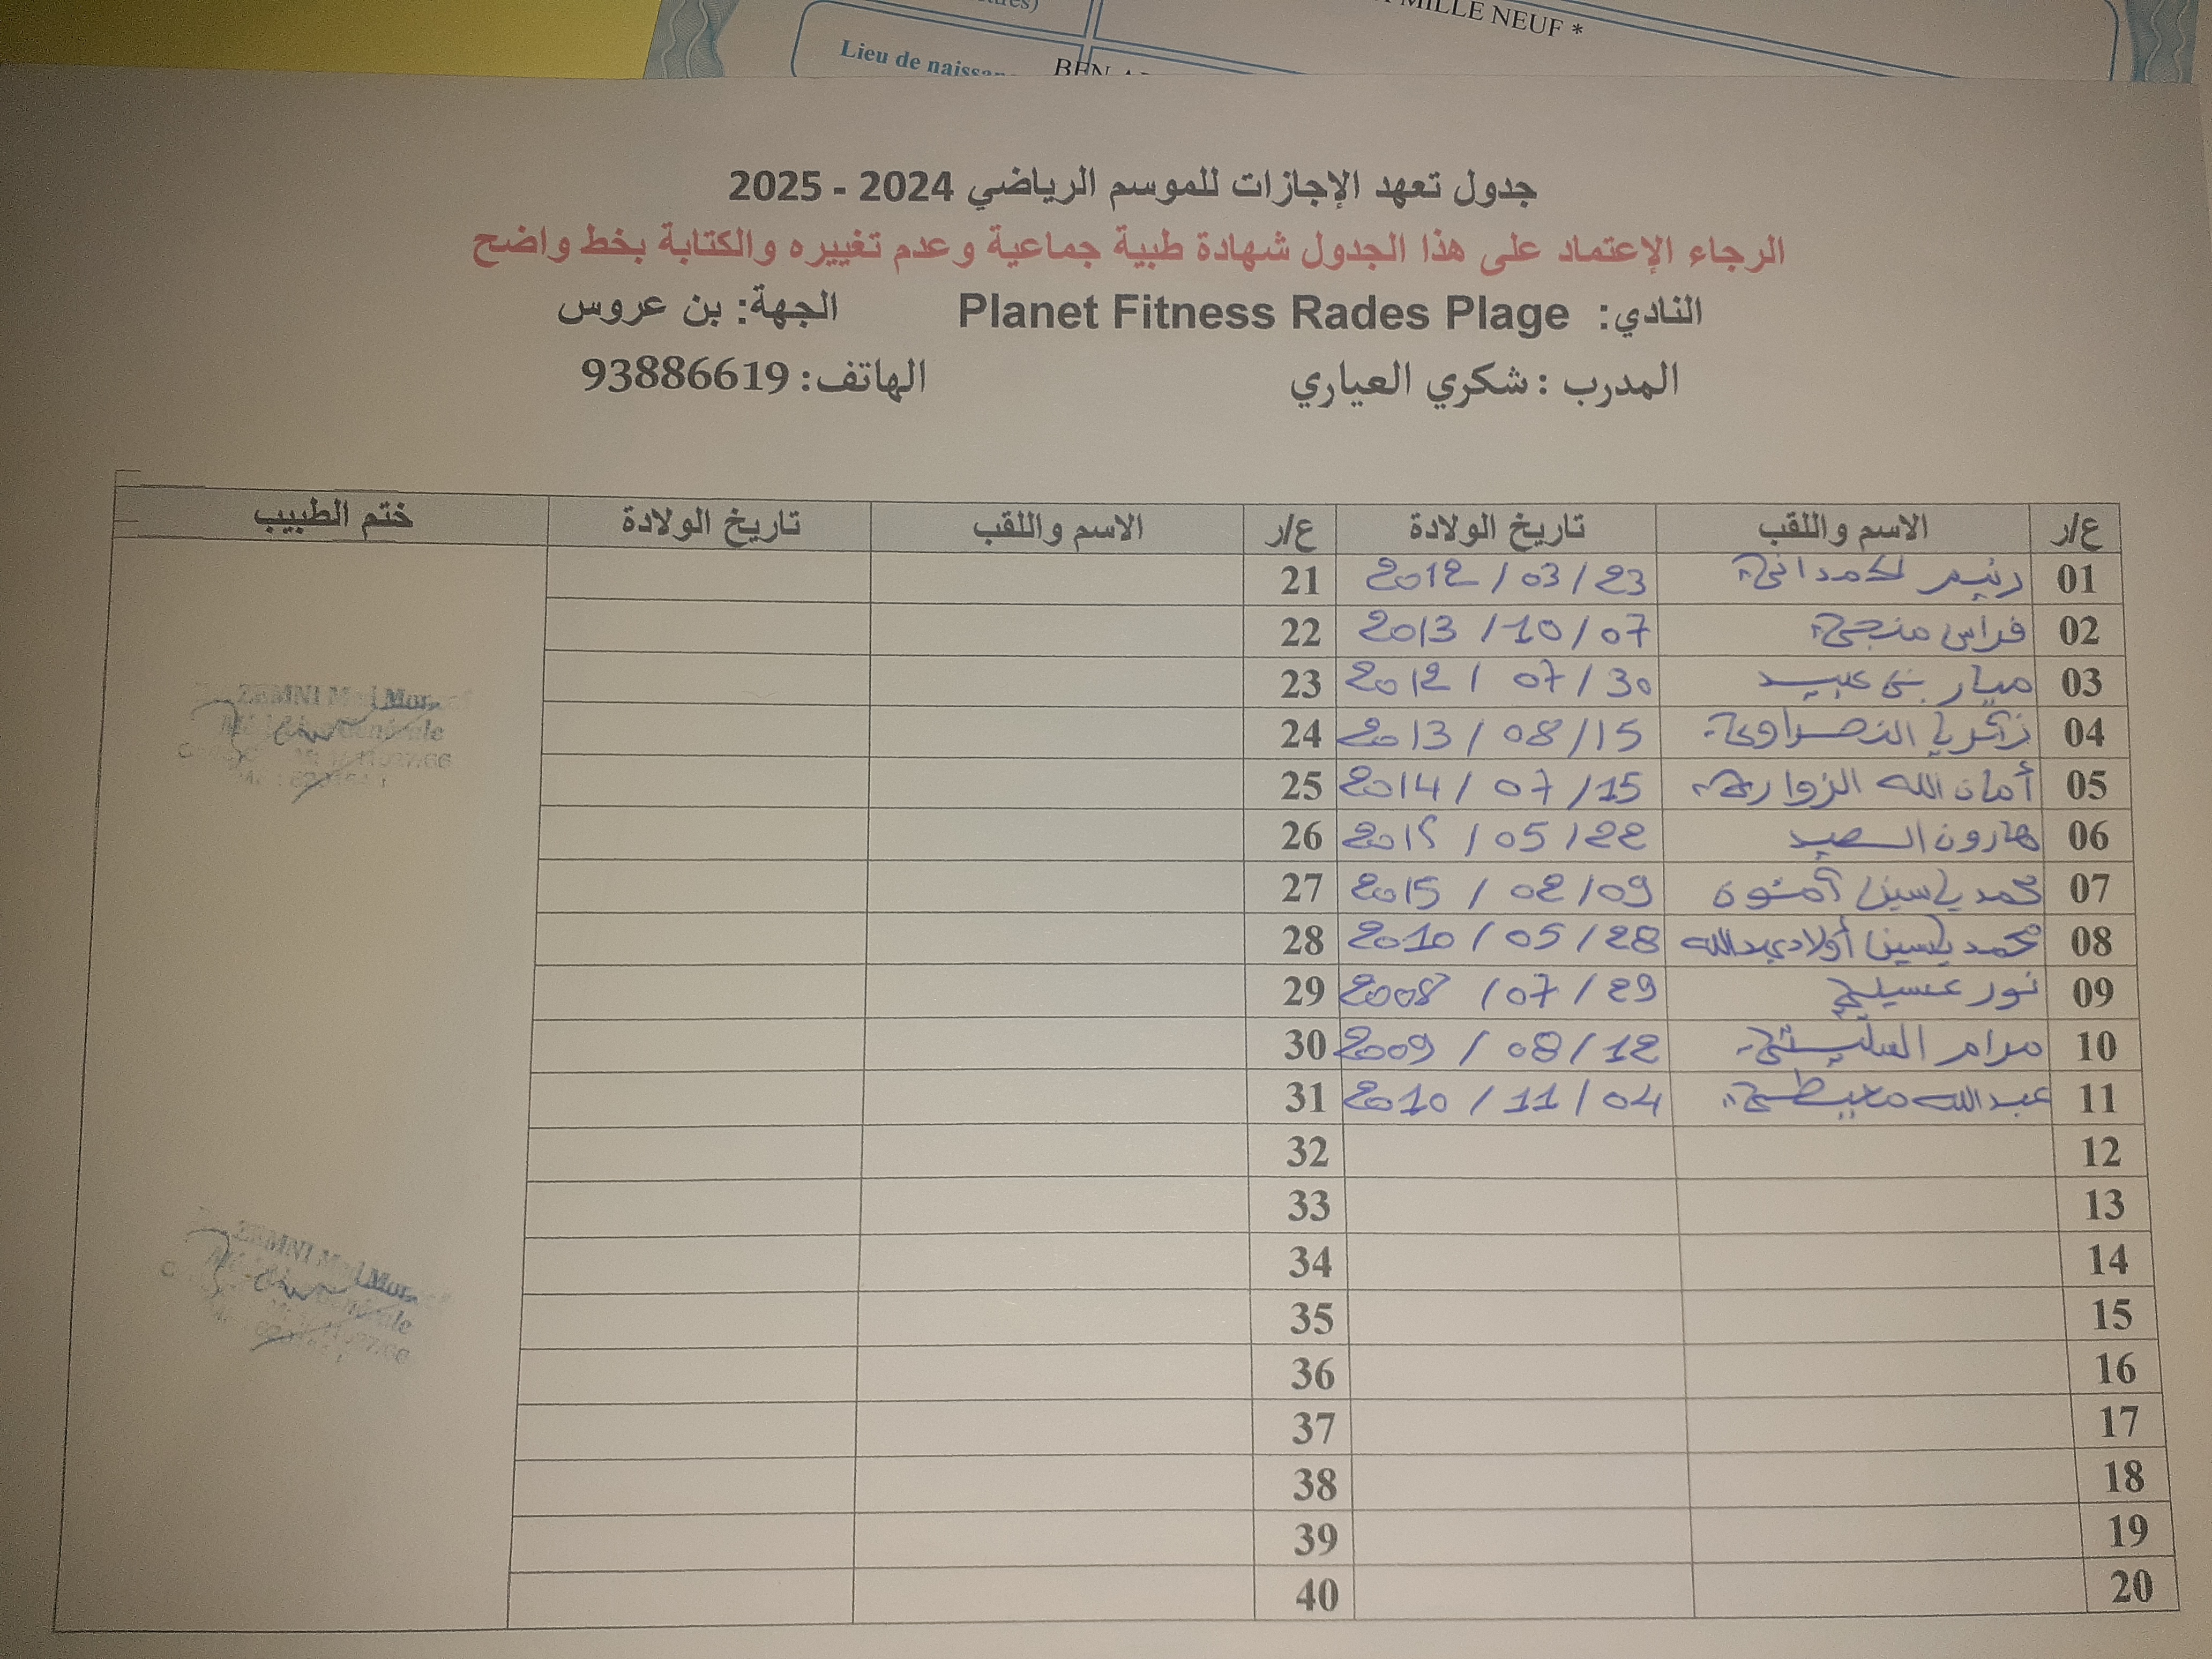 MILLE NEUF *
Lieu de naissan
جدول تعهد الإجازات للموسم الرياضي 2024 - 2025
الرجاء الإعتماد على هذا الجدول شهادة طبية جماعية وعدم تغييره والكتابة بخط واضح
النادي: Planet Fitness Rades Plage الجهة: بن عروس
المدرب : شكري العياري الهاتف: 93886619
ع/ر الاسم واللقب تاريخ الولادة ع/ر الاسم واللقب تاريخ الولادة ختم الطبيب
01 2012 / 03 / 23 21
02 فراس منجي 2013 / 10 / 07 22
03 ميار بن عبيد 2012 / 07 / 30 23
04 زكريا النصراوي 2013 / 08 / 15 24
05 أمان الله الزواري 2014 / 07 / 15 25
06 هارون السعيد 2015 / 05 / 22 26
07 محمد ياسين 2015 / 02 / 09 27
08 محمد ياسين أولاد عبدالله 2010 / 05 / 28 28
09 نور عسيلي 2008 / 07 / 29 29
10 مرام السليتي 2009 / 08 / 12 30
11 عبد الله 2010 / 11 / 04 31
12 32
13 33
14 34
15 35
16 36
17 37
18 38
19 39
20 40
ZEMNI
Générale
ZEMNI